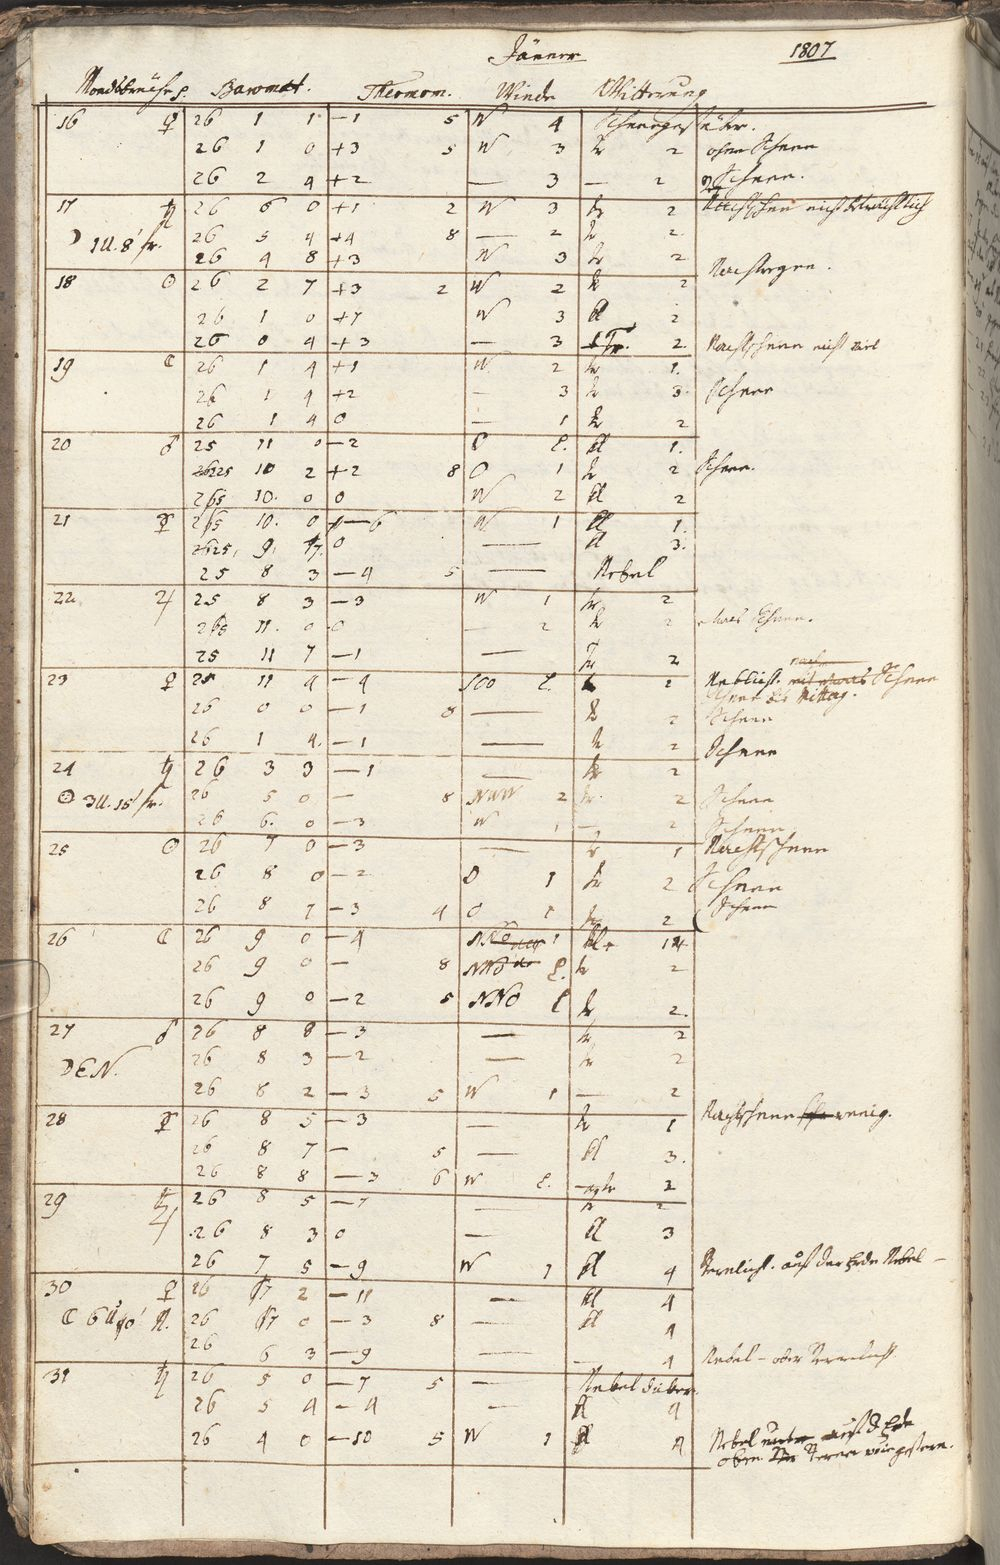 Jänner 1807
Baromet. Thermom. Winde Witterung
16 ♀ 26 1 1 —1 5 W 4
26 1 0 +3 5 W 3 tr 2 ohne Schnee
26 2 4 +2 — 3 — 2 Schnee.
17 ♄ 26 6 0 +1 2 W 3 tr 2
☽ 1 U. 8' fr. 26 5 4 +4 8 — 2 tr 2
26 4 8 +3 W 3 tr 2
18 ☉ 26 2 7 +3 2 W 2 tr 2 Nachtregen.
26 1 0 +7 W 3 kl 2
26 0 4 +3 — 3 Tr. 2
19 ☾ 26 1 4 +1 W 2 tr 1. Nachtschnee nicht viel
26 1 4 +2 — 3 tr 3. Schnee
26 1 4 0 — 1 tr 2
20 ♂ 25 11 0 —2 kl 1.
25 10 2 +2 8 O 1 tr 2 Schnee.
25 10. 0 0 W 2 kl 2
21 ☿ 25 10. 0 —6 W 1 kl 1.
25 9 7. 0 — kl 3.
25 8 3 —4 5 — Nebel
22 ♃ 25 8 3 —3 W 1 tr 2
25 11. 0 0 — 2 tr 2 etwas Schnee.
25 11 7 —1 — tr 2
23 ♀ 25 11 4 —4 tr 2 Neblicht. nach Schnee bis Mittag.
26 0 0 —1 8 — tr 2 Schnee
26 1 4. —1 — tr 2 Schnee
24 ♄ 26 3 3 —1 — tr 2
3 U. 15' fr. 26 5 0 — 8 NWW 2 tr. 2 Schnee
26 6. 0 —3 W 1 — 2 Schnee
25 ☉ 26 7 0 —3 — tr 1 Nachtschnee
26 8 0 —2 O 1 tr 2 Schnee
26 8 7 —3 4 O 1 tr 2 Schnee
26 ☾ 26 9 0 —4 NNO 1 kl
26 9 0 — 8 NNO tr 2
26 9 0 —2 5 NNO tr 2.
27 ♂ 26 8 8 —3 — tr 2
☽ E.N. 26 8 3 —2 — tr 2
26 8 2 —3 5 W 1 — 2
28 ☿ 26 8 5 —3 — tr 1 Nachtschnee wenig.
26 8 7 — 5 — kl 3.
26 8 8 —3 6 W tr 2
29 ♃ 26 8 5 —7 — tr 2
26 8 3 0 — kl 3
26 7 5 —9 W 1 kl 4 auf der Erde Nebel —
30 ♀ 26 7 2 —11 — kl 4
☾ 6 U. 26 7 0 —3 8 — kl 4
26 6 3 —9 — — 4 Nebel — oder
31 ♄ 26 5 0 —7 5 — Nebel
26 5 4 —4 — kl 4
26 4 0 —10 5 W 1 kl 4 Nebel auf d Erde
oben wie gestern.